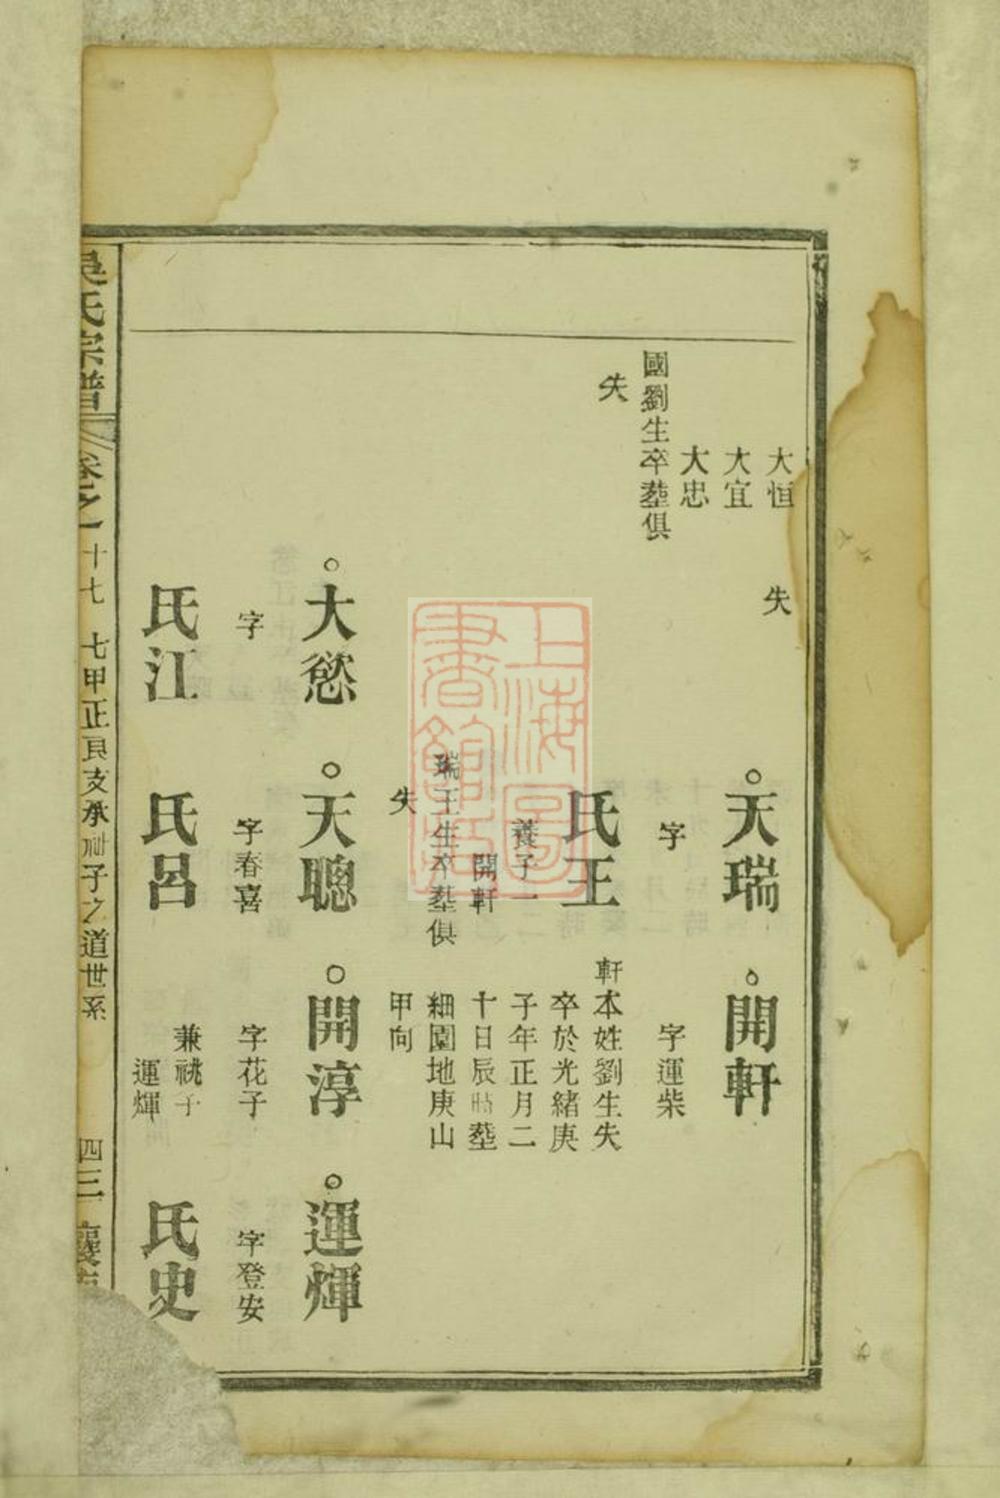 大恒
大宜
大忠
國劉生卒塟俱
失
失
天瑞
字
氏王
養子一
開軒
瑞王生卒塟俱
失
開軒
字運柴
軒本姓劉生失
卒於光緒庚
子年正月二
十日辰時塟
細園地庚山
甲向
大慾
字
氏江
天聰
字春喜
氏呂
開淳
字花子
兼祧子
運輝
運輝
字登安
氏史
吳氏宗譜
卷之一
十七 七甲正良支承州子之道世系
四三
上海圖書館藏